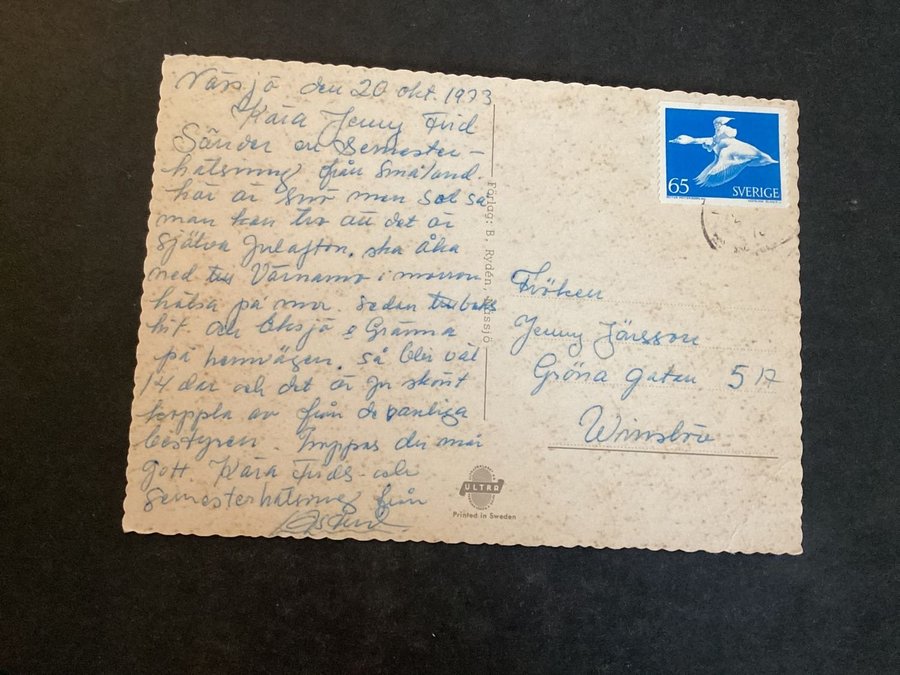 Nässjö den 20 okt. 1973
Kära Jenny Frid
Sänder en Semester-
hälsning från Småland.
här är snö men sol så
man kan tro att det är
själva Julafton. ska åka
ned till Värnamo i morron
hälsa på mor. sedan tillbaks
hit. och Eksjö o Gränna
på hemvägen. så blir väl
14 dar och det är ju skönt
koppla av från de vanliga
bestyren. hoppas du mår
gott Kära Frids- och
Semesterhälsning från
65 SVERIGE
Fröken
Jenny Jönsson
Gröna gatan 5 A
Förlag: B. Rydén, Nässjö
ULTRA
Printed in Sweden